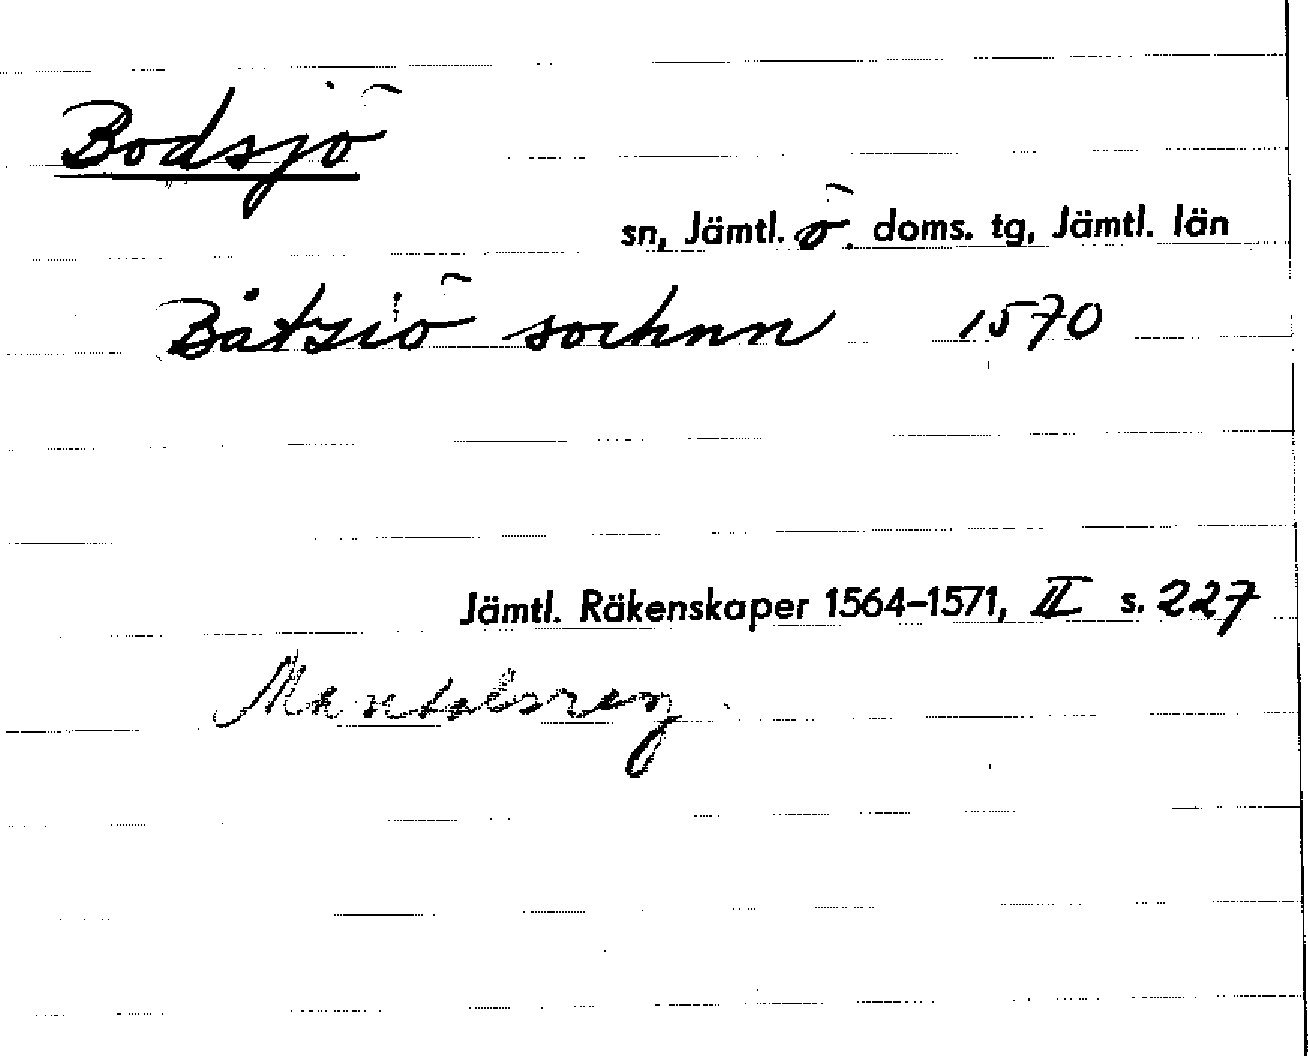 Bodsjö
sn, Jämtl. ö. doms. tg, Jämtl. län
Båtzsiö sochnn 1570
Jämtl. Räkenskaper 1564-1571, II s. 227
Mantalsreg